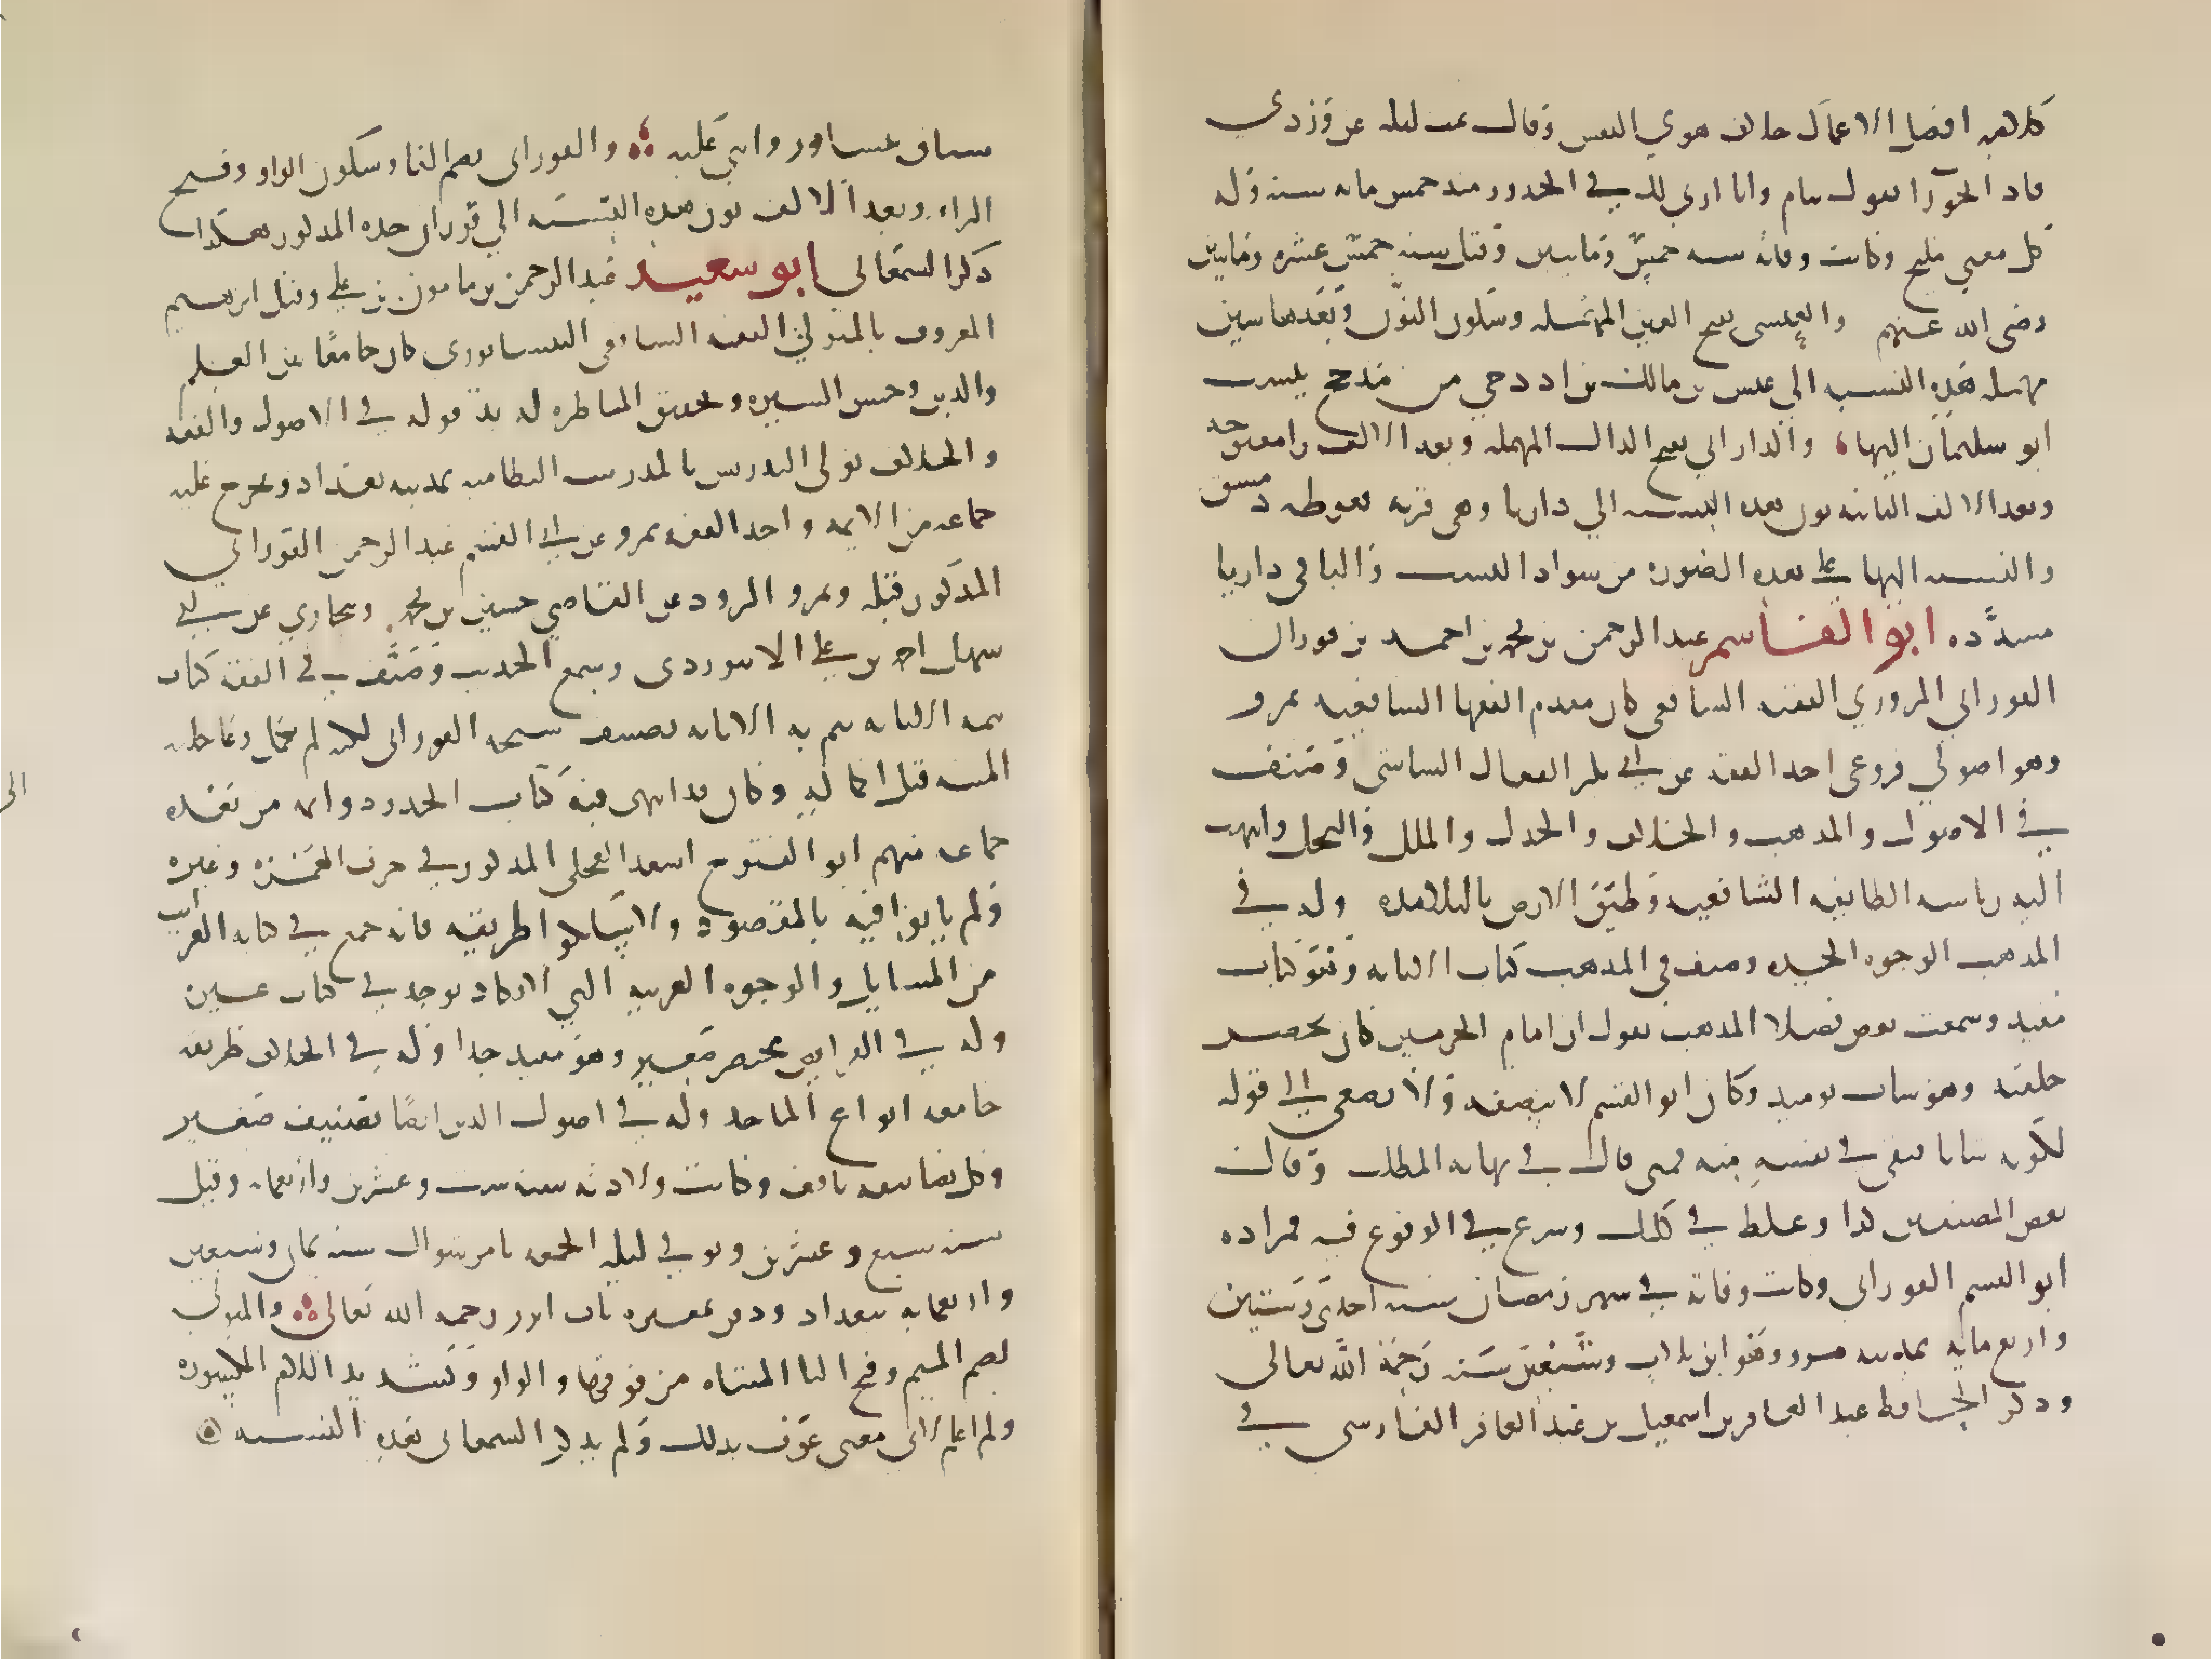 كلامه افضل الاعمال خلاف هوي النفس وقال نمت ليله عن وردي
فاذا بحورا تقول تنام وانا اربي لك في الخدور منذ خمس مايه سنه وله
كل معنى مليح وكانت وفاته سنه خمس ومايتين وقيل سنه خمس عشره ومايتين
رضي الله عنهم والعنسي بفتح العين المهمله وسكون النون وبعدها سين
مهمله هذه النسبه الي عنس بن مالك بن ادد حي من مذحج ينسب
ابو سليمان اليها والداراني بفتح الدال المهمله وبعد الالف را مفتوحه
وبعد الالف الثانيه نون هذه النسبه الي داريا وهي قريه بغوطه دمشق
والنسبه اليها علي هذه الصوره من شواذ النسب واليا في داريا
مشدده ابو القاسم عبد الرحمن بن محمد بن احمد بن فوران
الفوراني المروزي الفقيه الشافعي كان مقدم الفقها الشافعيه بمرو
وهو اصولي فروعي اخذ الفقه عن ابي بكر القفال الشاشي وصنف
في الاصول والمذهب والخلاف والجدل والملل والنحل وانتهت
اليه رياسه الطايفه الشافعيه وطبق الارض بالتلامذه وله في
المذهب الوجوه الجيده وصنف في المذهب كتاب الابانه وهو كتاب
مفيد وسمعت بعض فضلا المذهب يقول ان امام الحرمين كان يحضر
حلقته وهو شاب يوميذ وكان ابو القسم لا ينصفه ولا يصغي الى قوله
لكونه شابا فبقي في نفسه منه فمتى قال في نهايه المطلب وقال
بعض المصنفين كذا وغلط في ذلك وشرع في الوقوع فيه فمراده
ابو القسم الفوراني وكانت وفاته في شهر رمضان سنه احدى وستين
واربع مايه بمدينه مرو وهو ابن ثلاث وسبعين سنه رحمه الله تعالى
وذكر الحافظ عبد الغافر بن اسمعيل بن عبد الغافر الفارسي في
سياق نيسابور واثني عليه والفوراني بضم الفا وسكون الواو وفتح
الراء وبعد الالف نون هذه النسبه الي فوران جده المذكور هكذا
ذكر السمعاني ابو سعيد عبد الرحمن بن مامون بن علي وقيل ابرهيم
المعروف بالمتولي الفقيه الشافعي النيسابوري كان جامعا بين العلم
والدين وحسن السيره وتحقيق المناظره له يد قويه في الاصول والفقه
والخلاف تولى التدريس بالمدرسه النظاميه بمدينه بغداد وتخرج عليه
جماعه من الايمه واخذ الفقه بمرو عن ابي القسم عبد الرحمن الفوراني
المذكور قبله وبمرو الروذ عن القاضي حسين بن محمد وببخاري عن ابي
سهل احمد بن علي الابيوردي وسمع الحديث وصنف في الفقه كتاب
تتمه الابانه تمم به الابانه تصنيف شيخه الفوراني لكنه لم يكمل وعاجلته
المنيه قبل اكماله وكان قد انتهى فيه كتاب الحدود واتمه من بعده
جماعه منهم ابو الفتوح اسعد العجلي المذكور في حرف الهمزه وغيره
ولم ياتوا فيه بالمقصود ولا سلكوا طريقه فانه جمع في كتابه الغرايب
من المسايل والوجوه الغريبه التي لا تكاد توجد في كتاب غيره
وله في الفرايض مختصر صغير وهو مفيد جدا وله في الخلاف طريقه
جامعه انواع الماخذ وله في اصول الدين ايضا تصنيف صغير
وكل تصانيفه نافعه وكانت ولادته سنه ست وعشرين واربعمايه وقيل
سنه سبع وعشرين وتوفي ليله الجمعه ثامن شوال سنه ثمان وسبعين
واربعمايه ببغداد ودفن بمقبره باب ابرز رحمه الله تعالى والمتولي
بضم الميم وفتح التا المثناه من فوقها والواو وتشديد اللام المكسوره
ولم اعلم لاي معنى عرف بذلك ولم يذكر السمعاني هذه النسبه
الى